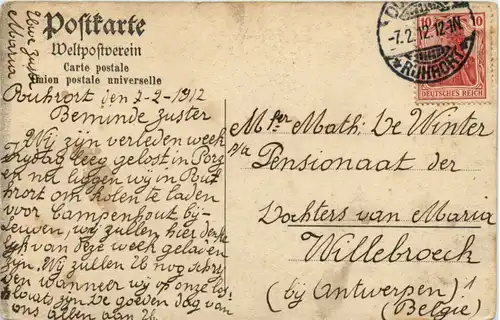 Postkarte
Weltpostverein
Carte postale
Union postale universelle
Uwe Zuster
Maria
Ruhrort den 7-2-1912
Beminde Zuster
Wij zijn verleden week
vrydag leeg gelost in
en nu liggen wij in Ruh
rort om kolen te laden
voor Campenhout by
Leuven, wij zullen hier denke
lijk van deze week geladen
zijn. Wij zullen U nog schry
ven wanneer wij op onze los
plaats zyn. De goeden dag van
ons allen aan U.
-7.2.12.12-1N
RUHRORT
10 10
DEUTSCHES REICH
Math: De Winter
p/a Pensionaat der
Dochters van Maria
Willebroeck
(bij Antwerpen)
(Belgie)